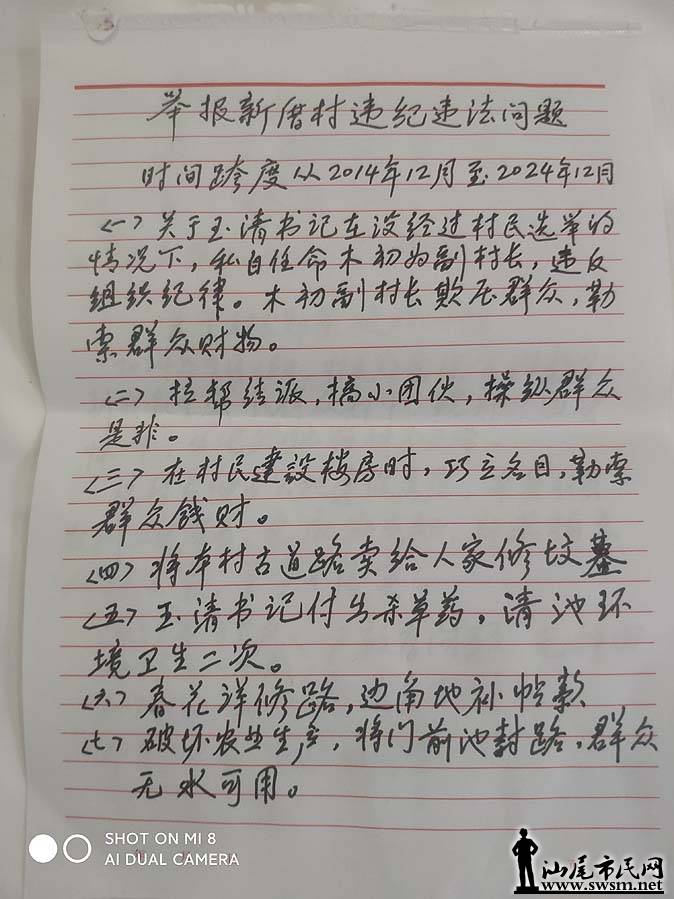 举报新厝村违纪违法问题
时间跨度从2014年12月至2024年12月
(一)关于玉清书记在没经过村民选举的
情况下，私自任命木初为副村长，违反
组织纪律。木初副村长欺压群众，勒
索群众财物。
(二)拉帮结派，搞小团伙，操纵群众
是非。
(三)在村民建設楼房时，巧立名目，勒索
群众钱财。
(四)将本村古道路卖给人家修坟墓
(五)玉清书记付出杀草药，清池环
境卫生二次。
(六)春花洋修路，边角地补帖款
(七)破坏农业生产，将门前池封路，群众
无水可用。
SHOT ON MI 8
AI DUAL CAMERA
汕尾市民网
www.swsm.net